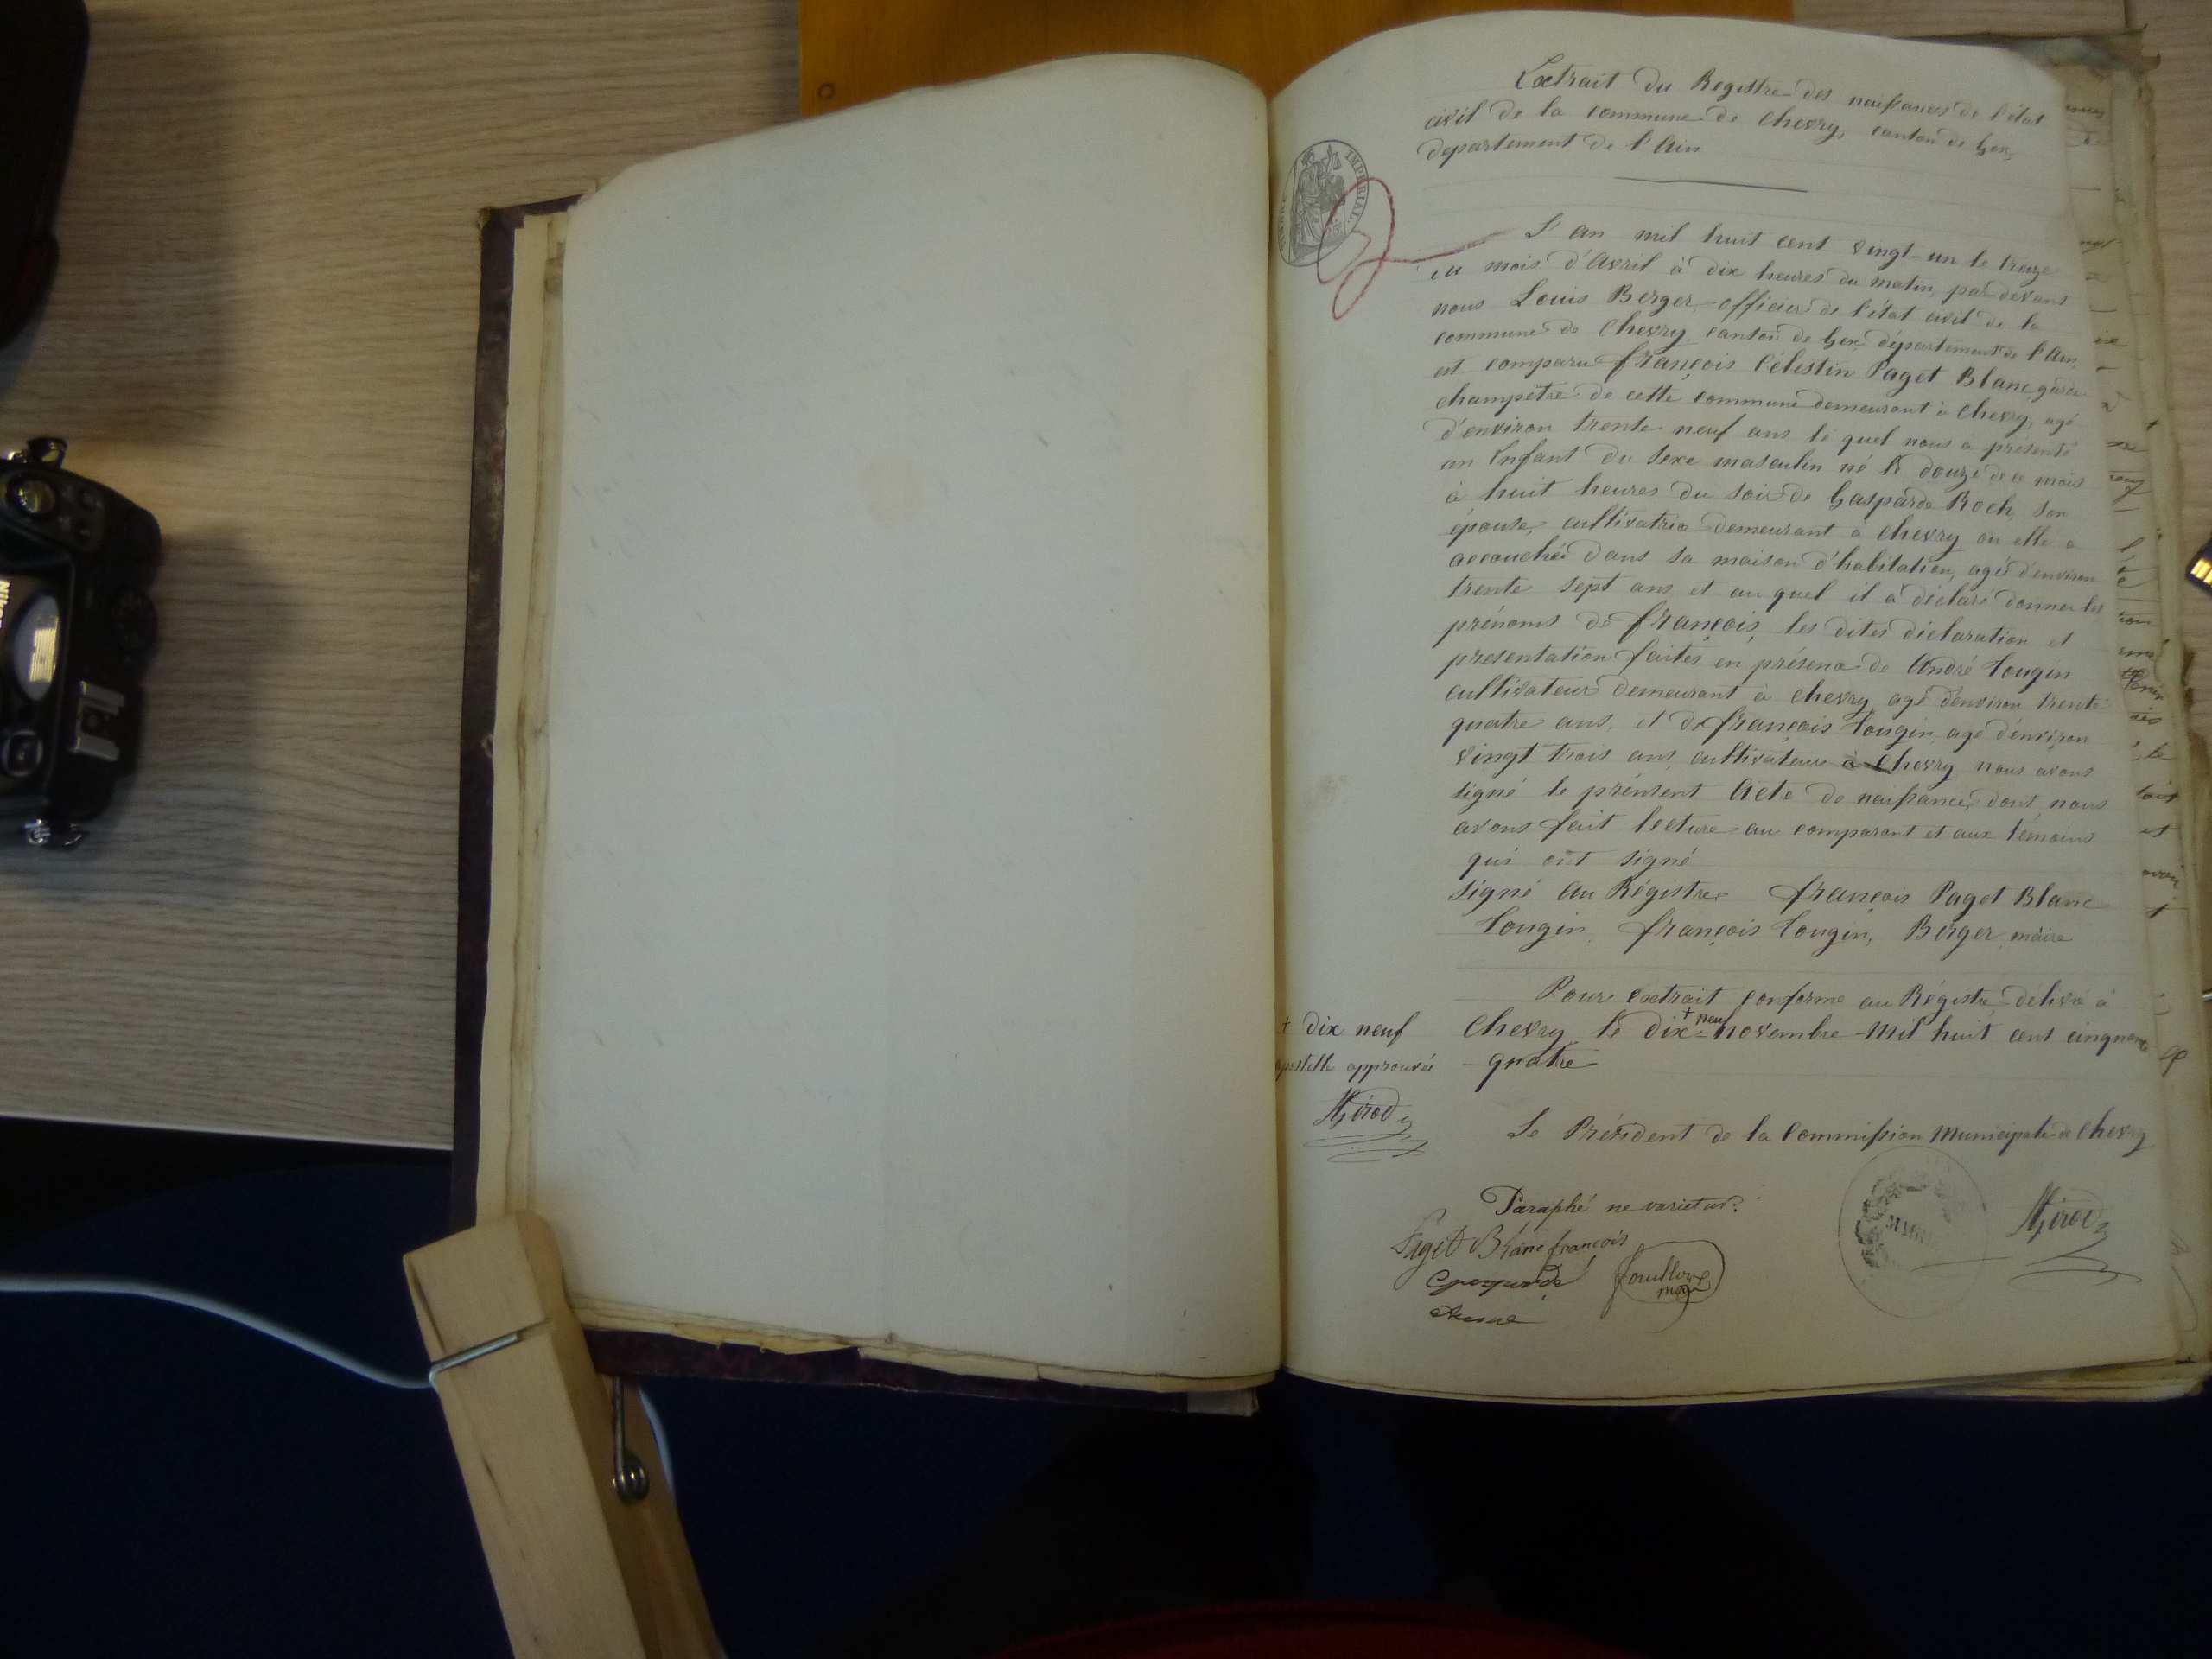 Extrait du Registre des naissances de l'état
civil de la commune de Chevry, canton de Gex,
département de l'Ain
IMPERIAL
L'an mil huit cent vingt-un le treize
du mois d'Avril à dix heures du matin, par devant
nous Louis Berger, officier de l'état civil de la
commune de Chevry canton de Gex département de l'Ain,
est comparu françois Célestin Paget Blanc garde
champêtre de cette commune demeurant à Chevry, agé
d'environ trente neuf ans le quel nous a présenté
un Enfant du Sexe masculin né le douze de ce mois
à huit heures du soir de Gasparde Roch, son
épouse, cultivatrice demeurant à Chevry ou elle a
accouchée dans sa maison d'habitation, agée d'environ
trente sept ans et au quel il a déclaré donner les
prénoms de françois, les dites déclaration et
présentation faites en présence de André Tougin
cultivateur demeurant à Chevry agé d'environ trente
quatre ans, et de françois Tougin agé d'environ
vingt trois ans cultivateur à Chevry nous avons
signé le présent Acte de naissance, dont nous
avons fait lecture au comparant et aux témoins
qui ont signé
Signé au Régistre françois Paget Blanc
Tougin, françois Tougin, Berger, maire
Pour Extrait conforme au Régistre, délivré à
Chevry le dix + neuf novembre mil huit cent cinquante
quatre
+ dix neuf
apostille approuvée
Girod
Le Président de la Commission municipale de Chevry
Paraphé ne varietur:
Paget Blanc françois
Girod
Nikon